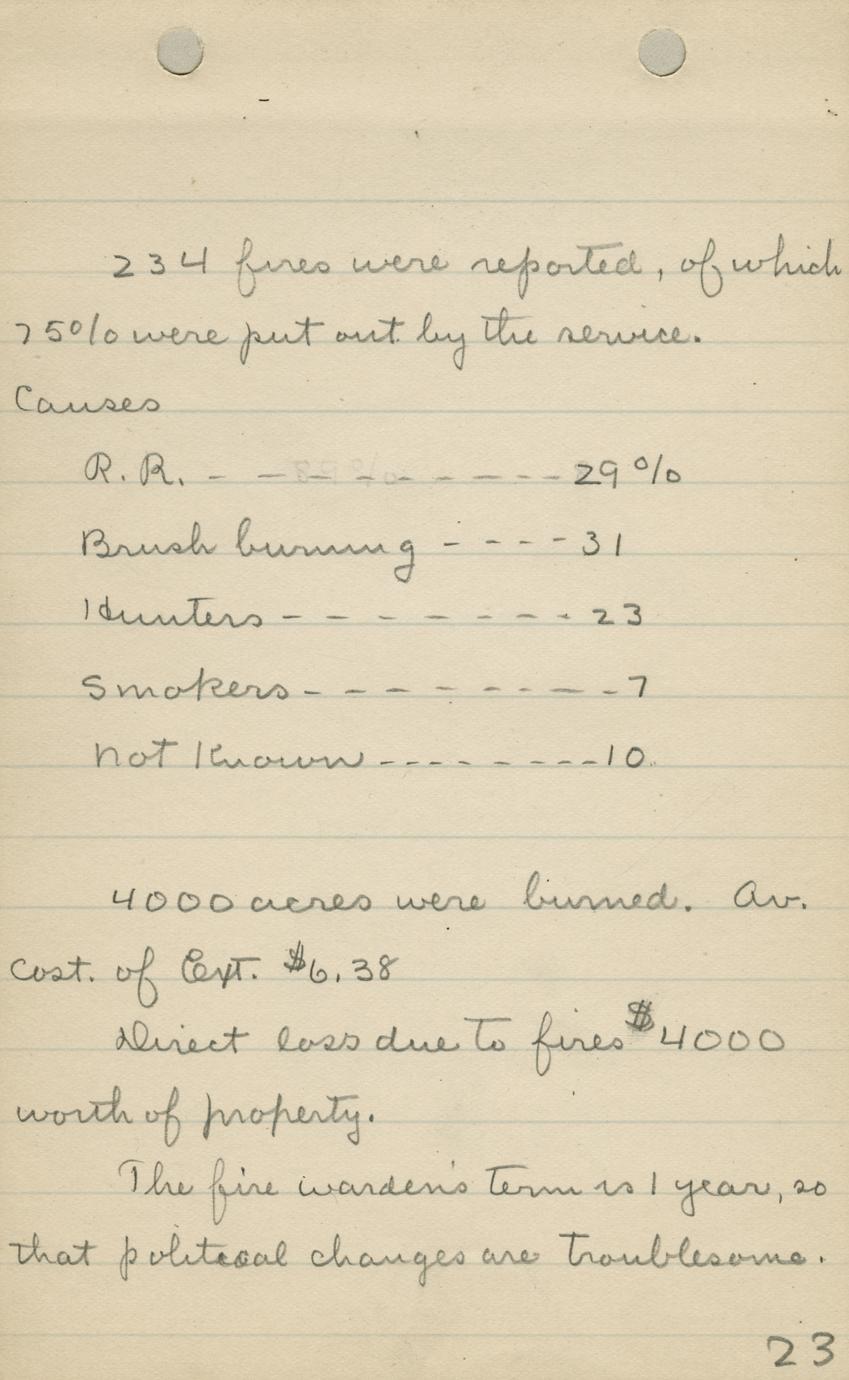 234 fires were reported, of which
75% were put out by the service.
Causes
R.R. - - - - - - - - 29%
Brush burning - - - - 31
Hunters - - - - - - - 23
Smokers - - - - - - - - 7
Not Known - - - - - - - - 10.
4000 acres were burned. Av.
cost. of Ext. $6.38
Direct loss due to fires $4000
worth of property.
The fire warden's term is 1 year, so
that political changes are troublesome.
23